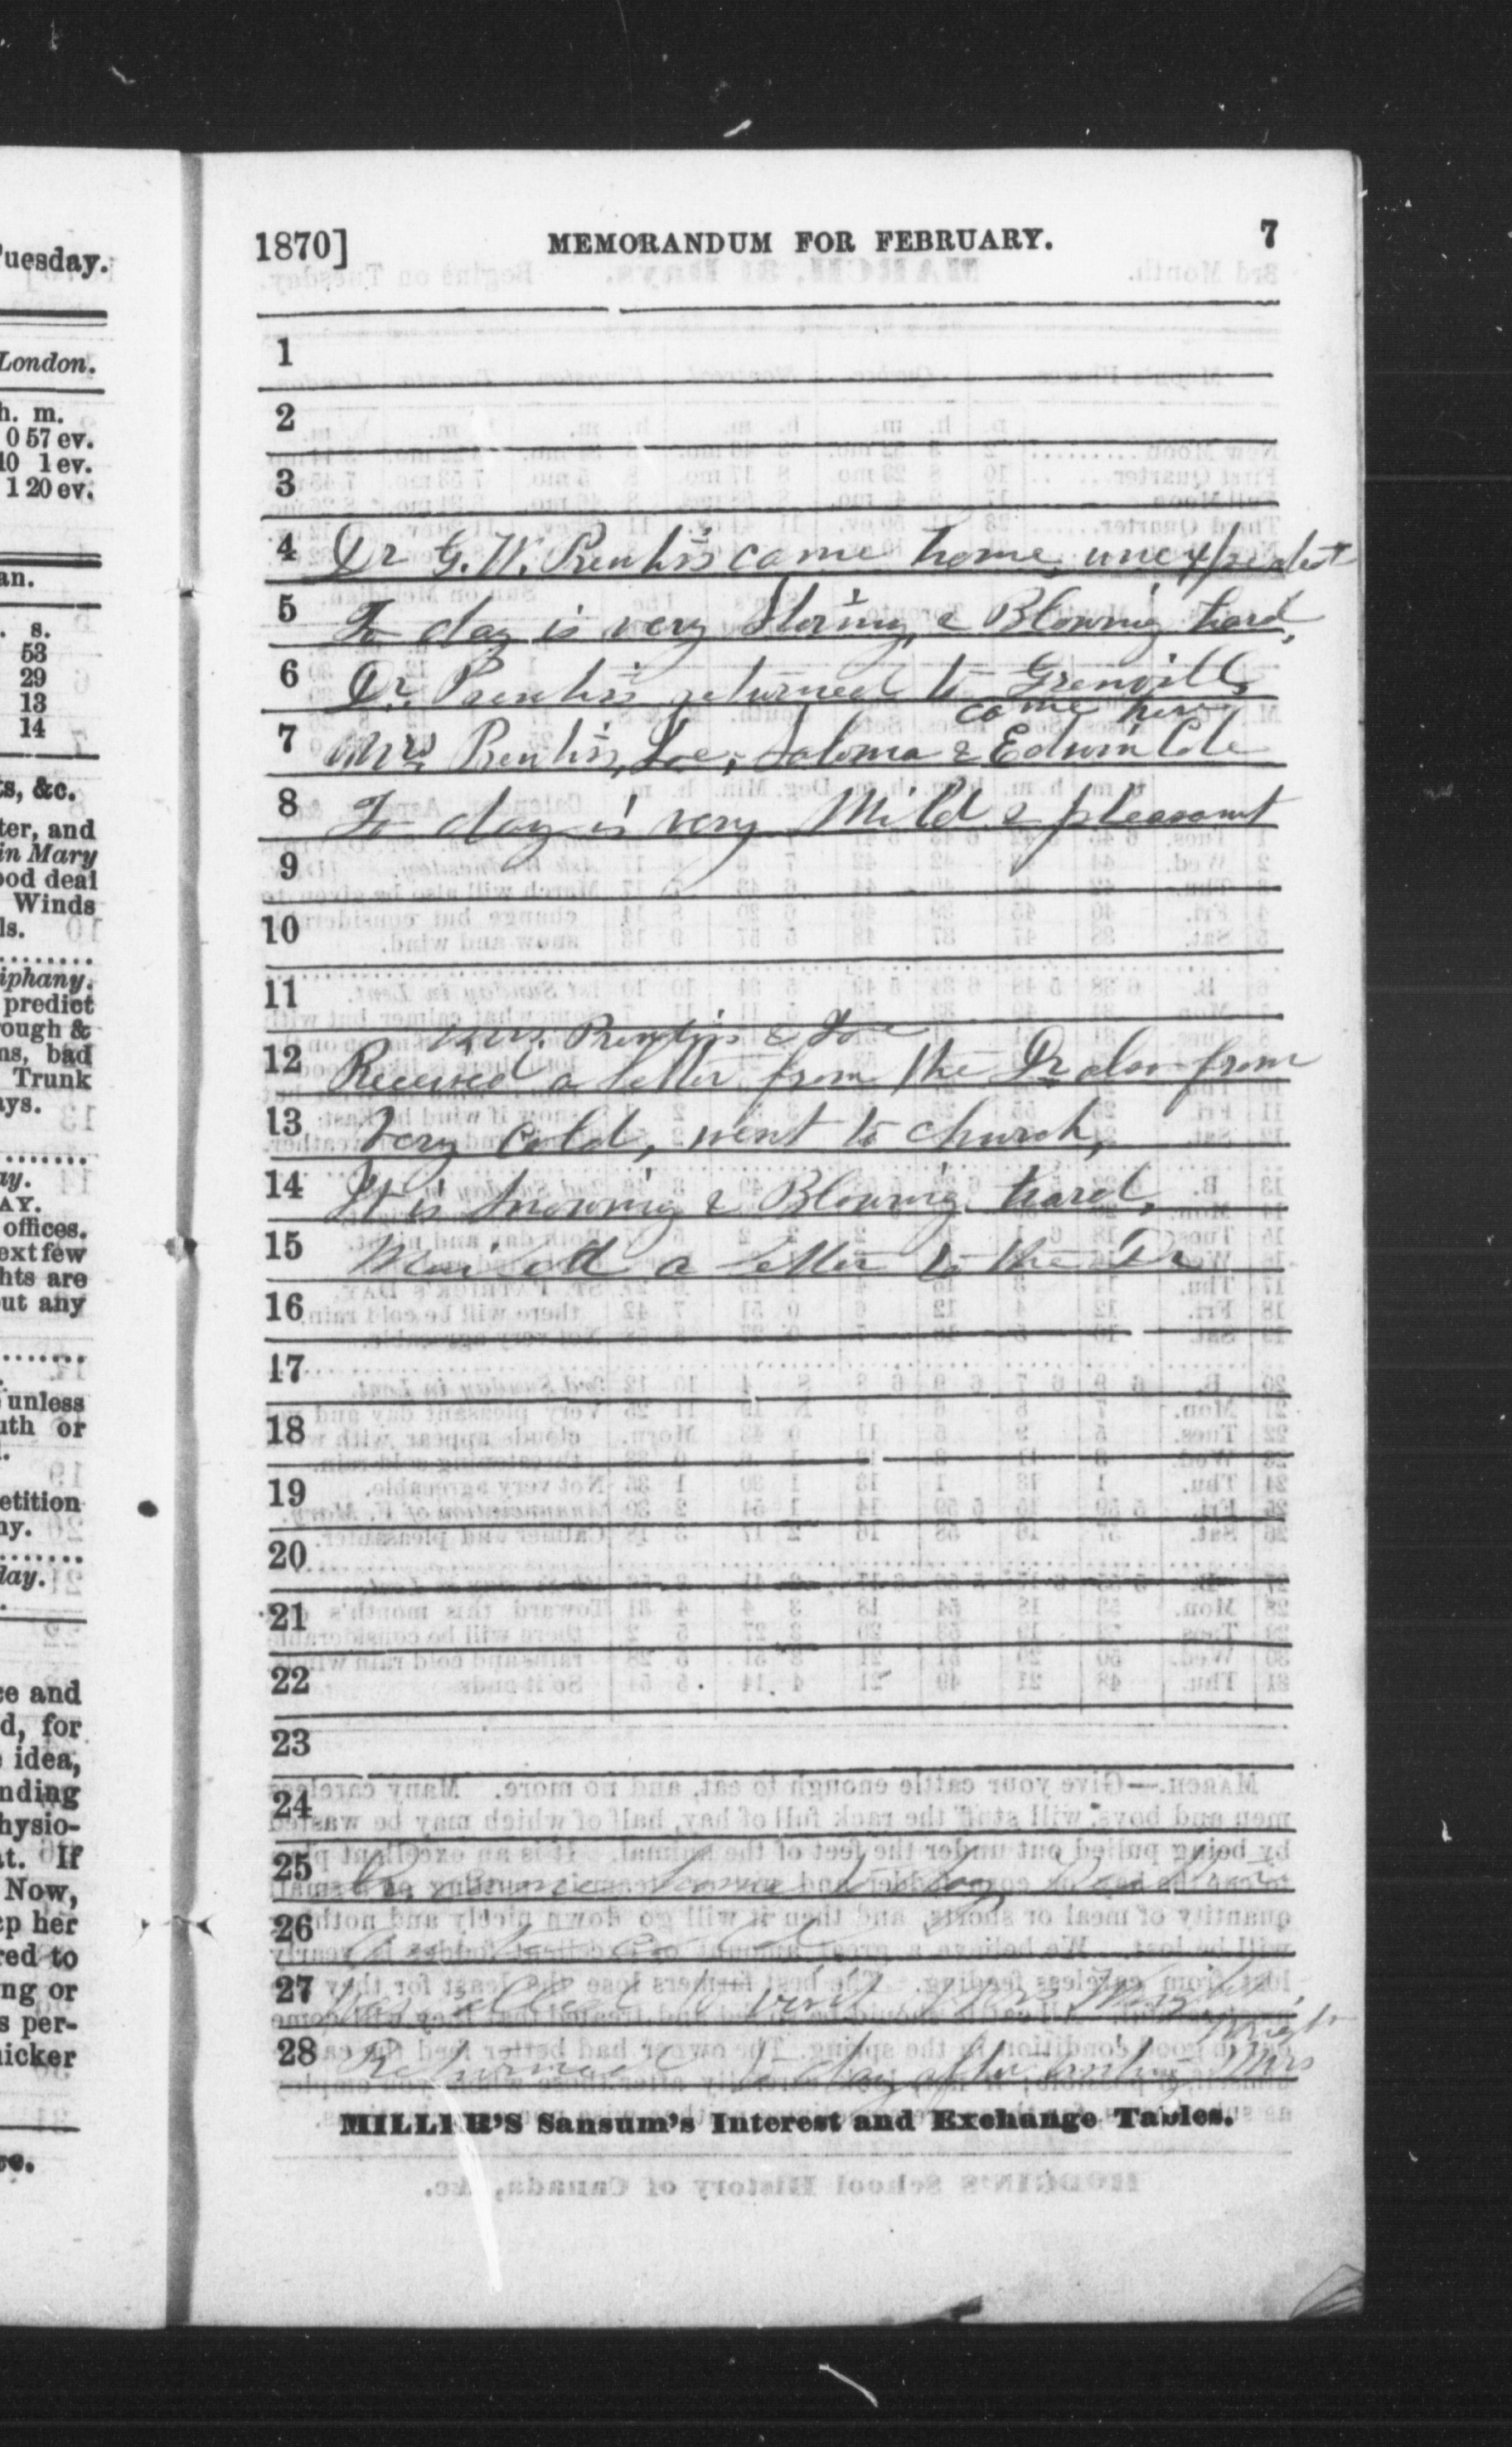 uesday.
London.
h. m.
0 57 ev.
10 1 ev.
1 20 ev.
an.
. s.
53
29
13
14
ts, &c.
ter, and
in Mary
ood deal
Winds
ls.
iphany.
predict
rough &
ns, bad
Trunk
ays.
ay.
AY.
offices.
ext few
hts are
out any
unless
uth or
etition
ny.
day.
ce and
d, for
idea,
nding
hysio-
at. If
Now,
ep her
red to
ng or
s per-
nicker
1870] MEMORANDUM FOR FEBRUARY. 7
1
2
3
4 Dr G. W. Prentiss came home,
5 To day is very Stormy, & Blowing hard,
6 Dr. Prentiss returned to Grenvill,
come here
7 Mrs Prentiss, Loe, Saloma & Edwin Cole
8 To day is very Mild & pleasant
9
10
11
Mrs. Prentiss & Loe
12 Received a letter from the Dr also from
13 Very Cold, went to church,
14 It is Snowing & Blowing hard,
15 Mailed a letter to the Dr
16
17
18
19
20
21
22
23
24
25 came home to day
26
27 to visit Mrs
28 Returned to day after Mrs
MILLER'S Sansum's Interest and Exchange Tables.